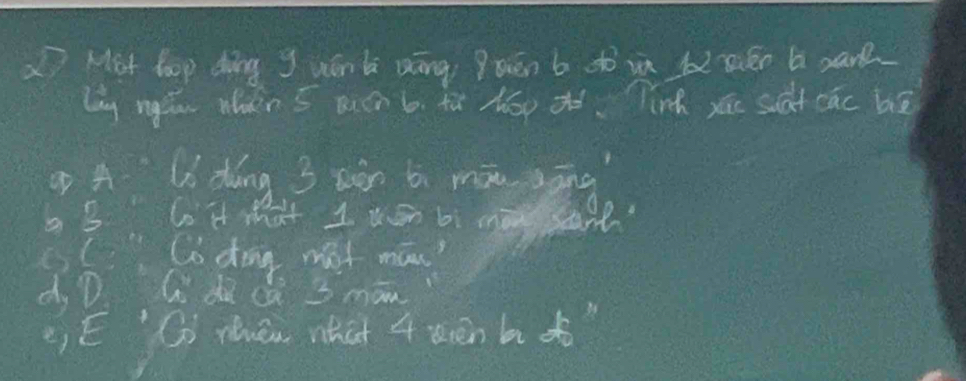 2) Một hộp đựng 9 viên bi vàng, 8 viên b đỏ và 12 viên bi xanh
Lấy ngẫu nhiên 5 viên bi từ hộp đó. Tính xác suất các biế
a) A "Có đúng 3 viên bi màu vàng"
b) B "Có ít nhất 1 viên bi màu xanh"
c) C: "Có đúng một màu"
d) D. "Có đủ cả 3 màu"
e) E "Có nhiều nhất 4 viên bi đỏ"